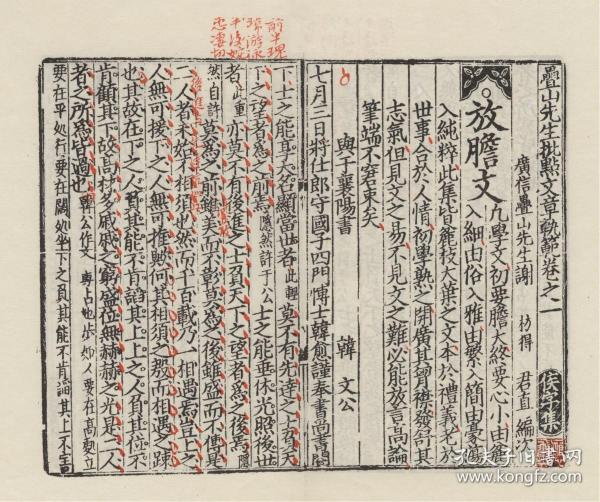 疊山先生批點文章軌範卷之一
廣信疊山先生謝 枋得 君直 編次
侯字集
放膽文
凡學文初要膽大終要心小由麄
入細由俗入雅由繁入簡由豪蕩
入純粹此集皆麄枝大葉之文本於禮義老於
世事合於人情初學熟之開廣其胷襟發舒其
志氣但見文之易不見文之難必能放言高論
筆端不窘束矣
與于襄陽書
韓 文公
七月三日將仕郎守國子四門博士韓愈謹奉書尚書閤
下士之能享大名顯當世者莫不有先達之士負天
下之望者爲之前焉士之能垂休光照後世
者亦莫不有後進之士負天下之望者爲之後焉
莫爲之前雖美而不彰莫爲之後雖盛而不傳是
二人者未始不相須也然而千百載乃一相遇焉豈上之
人無可援下之人無可推歟何其相須之殷而相遇之疎
也其故在下之人負其能不肯諂其上上之人負其位不
肯顧其下故高材多戚戚之窮盛位無赫赫之光是二人
者之所爲皆過也
孔夫子旧书网
www.kongfz.com